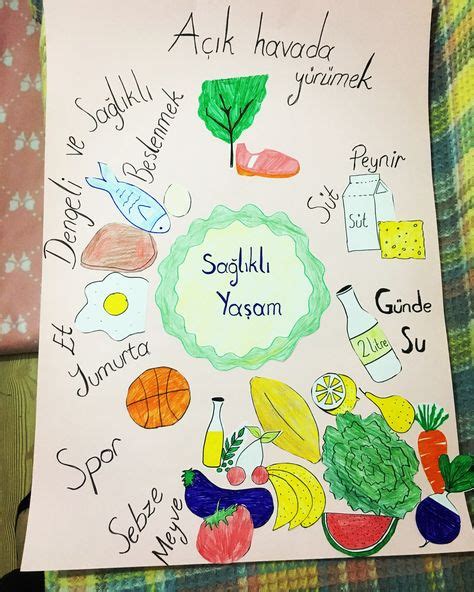 Açık havada
yürümek
Dengeli ve Sağlıklı
Beslenmek
Peynir
Süt
Süt
Sağlıklı
Yaşam
Günde
2 litre
Su
Et
Yumurta
Spor
Sebze
Meyve